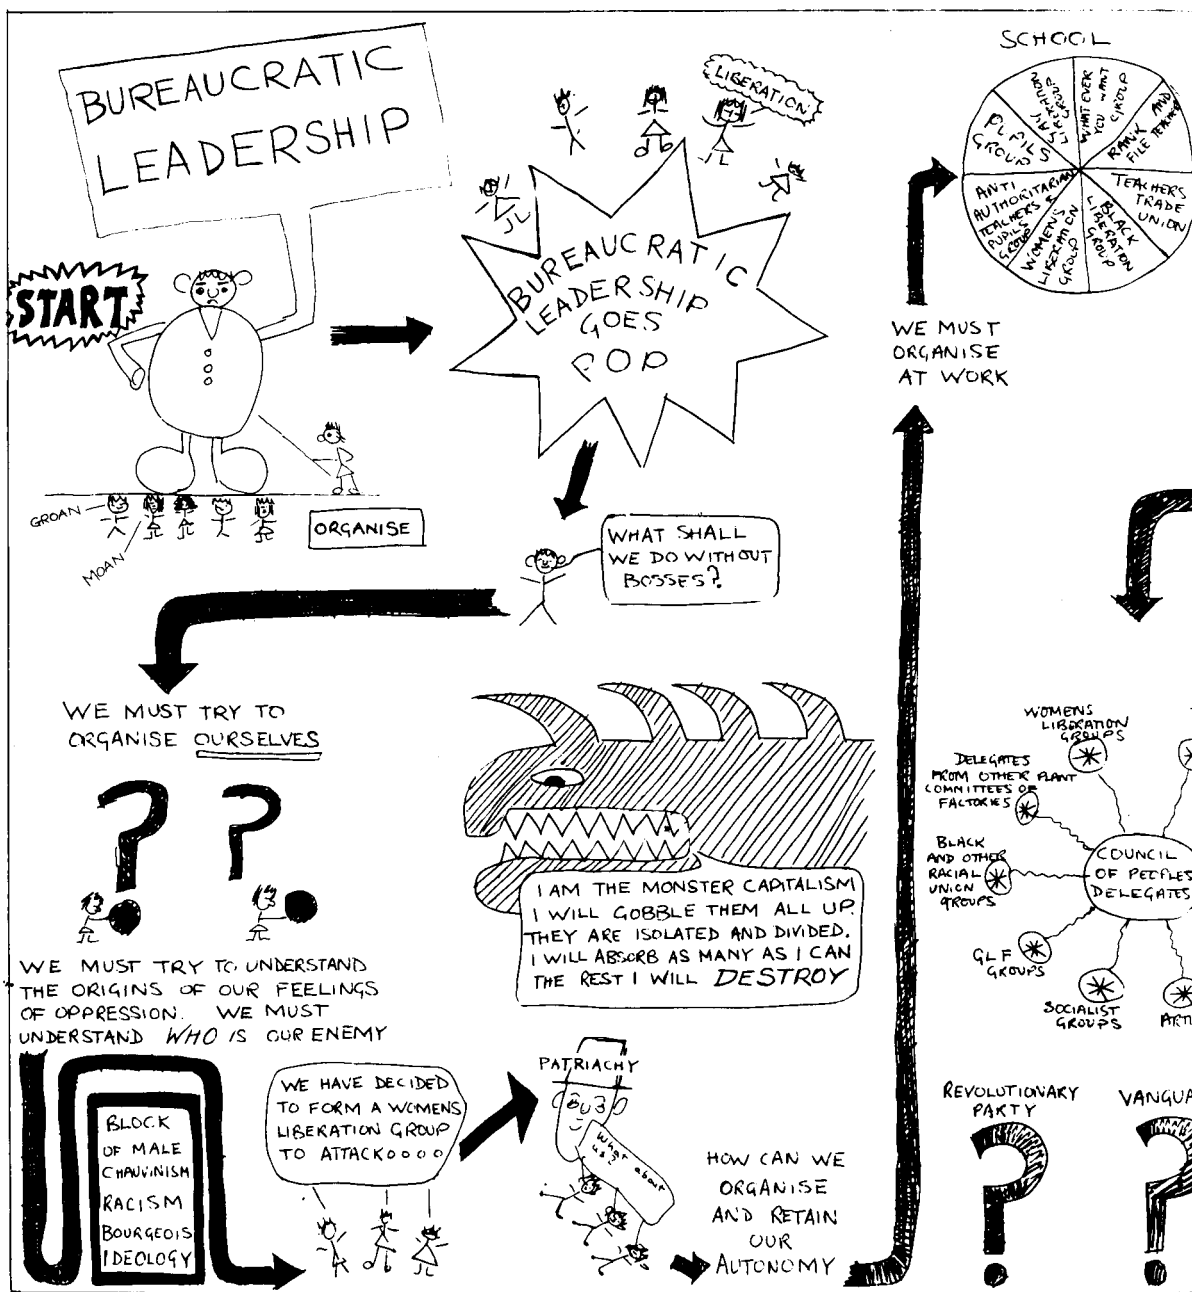 BUREAUCRATIC
LEADERSHIP
START
GROAN
MOAN
ORGANISE
LIBERATION
BUREAUCRATIC
LEADERSHIP
GOES
POP
WHAT SHALL
WE DO WITHOUT
BOSSES?
WE MUST TRY TO
ORGANISE OURSELVES
WE MUST TRY TO UNDERSTAND
THE ORIGINS OF OUR FEELINGS
OF OPPRESSION. WE MUST
UNDERSTAND WHO IS OUR ENEMY
BLOCK
OF MALE
CHAUVINISM
RACISM
BOURGEOIS
IDEOLOGY
WE HAVE DECIDED
TO FORM A WOMENS
LIBERATION GROUP
TO ATTACK
PATRIACHY
What about
us?
I AM THE MONSTER CAPITALISM
I WILL GOBBLE THEM ALL UP.
THEY ARE ISOLATED AND DIVIDED.
I WILL ABSORB AS MANY AS I CAN
THE REST I WILL DESTROY
HOW CAN WE
ORGANISE
AND RETAIN
OUR
AUTONOMY
WE MUST
ORGANISE
AT WORK
SCHOOL
GAY
LIBERATION
GROUP
WHAT EVER
YOU WANT
GROUP
RANK AND
FILE TEACHER
TEACHERS
TRADE
UNION
BLACK
LIBERATION
GROUP
WOMENS
LIBERATION
GROUP
ANTI
AUTHORITARIAN
TEACHERS &
PUPILS
GROUP
PUPILS
GROUP
WOMENS
LIBERATION
GROUPS
DELEGATES
FROM OTHER PLANT
COMMITTEES OF
FACTORIES
BLACK
AND OTHER
RACIAL
UNION
GROUPS
GLF
GROUPS
SOCIALIST
GROUPS
ARTI
COUNCIL
OF PEOPLES
DELEGATES
REVOLUTIONARY
PARTY
VANGUA